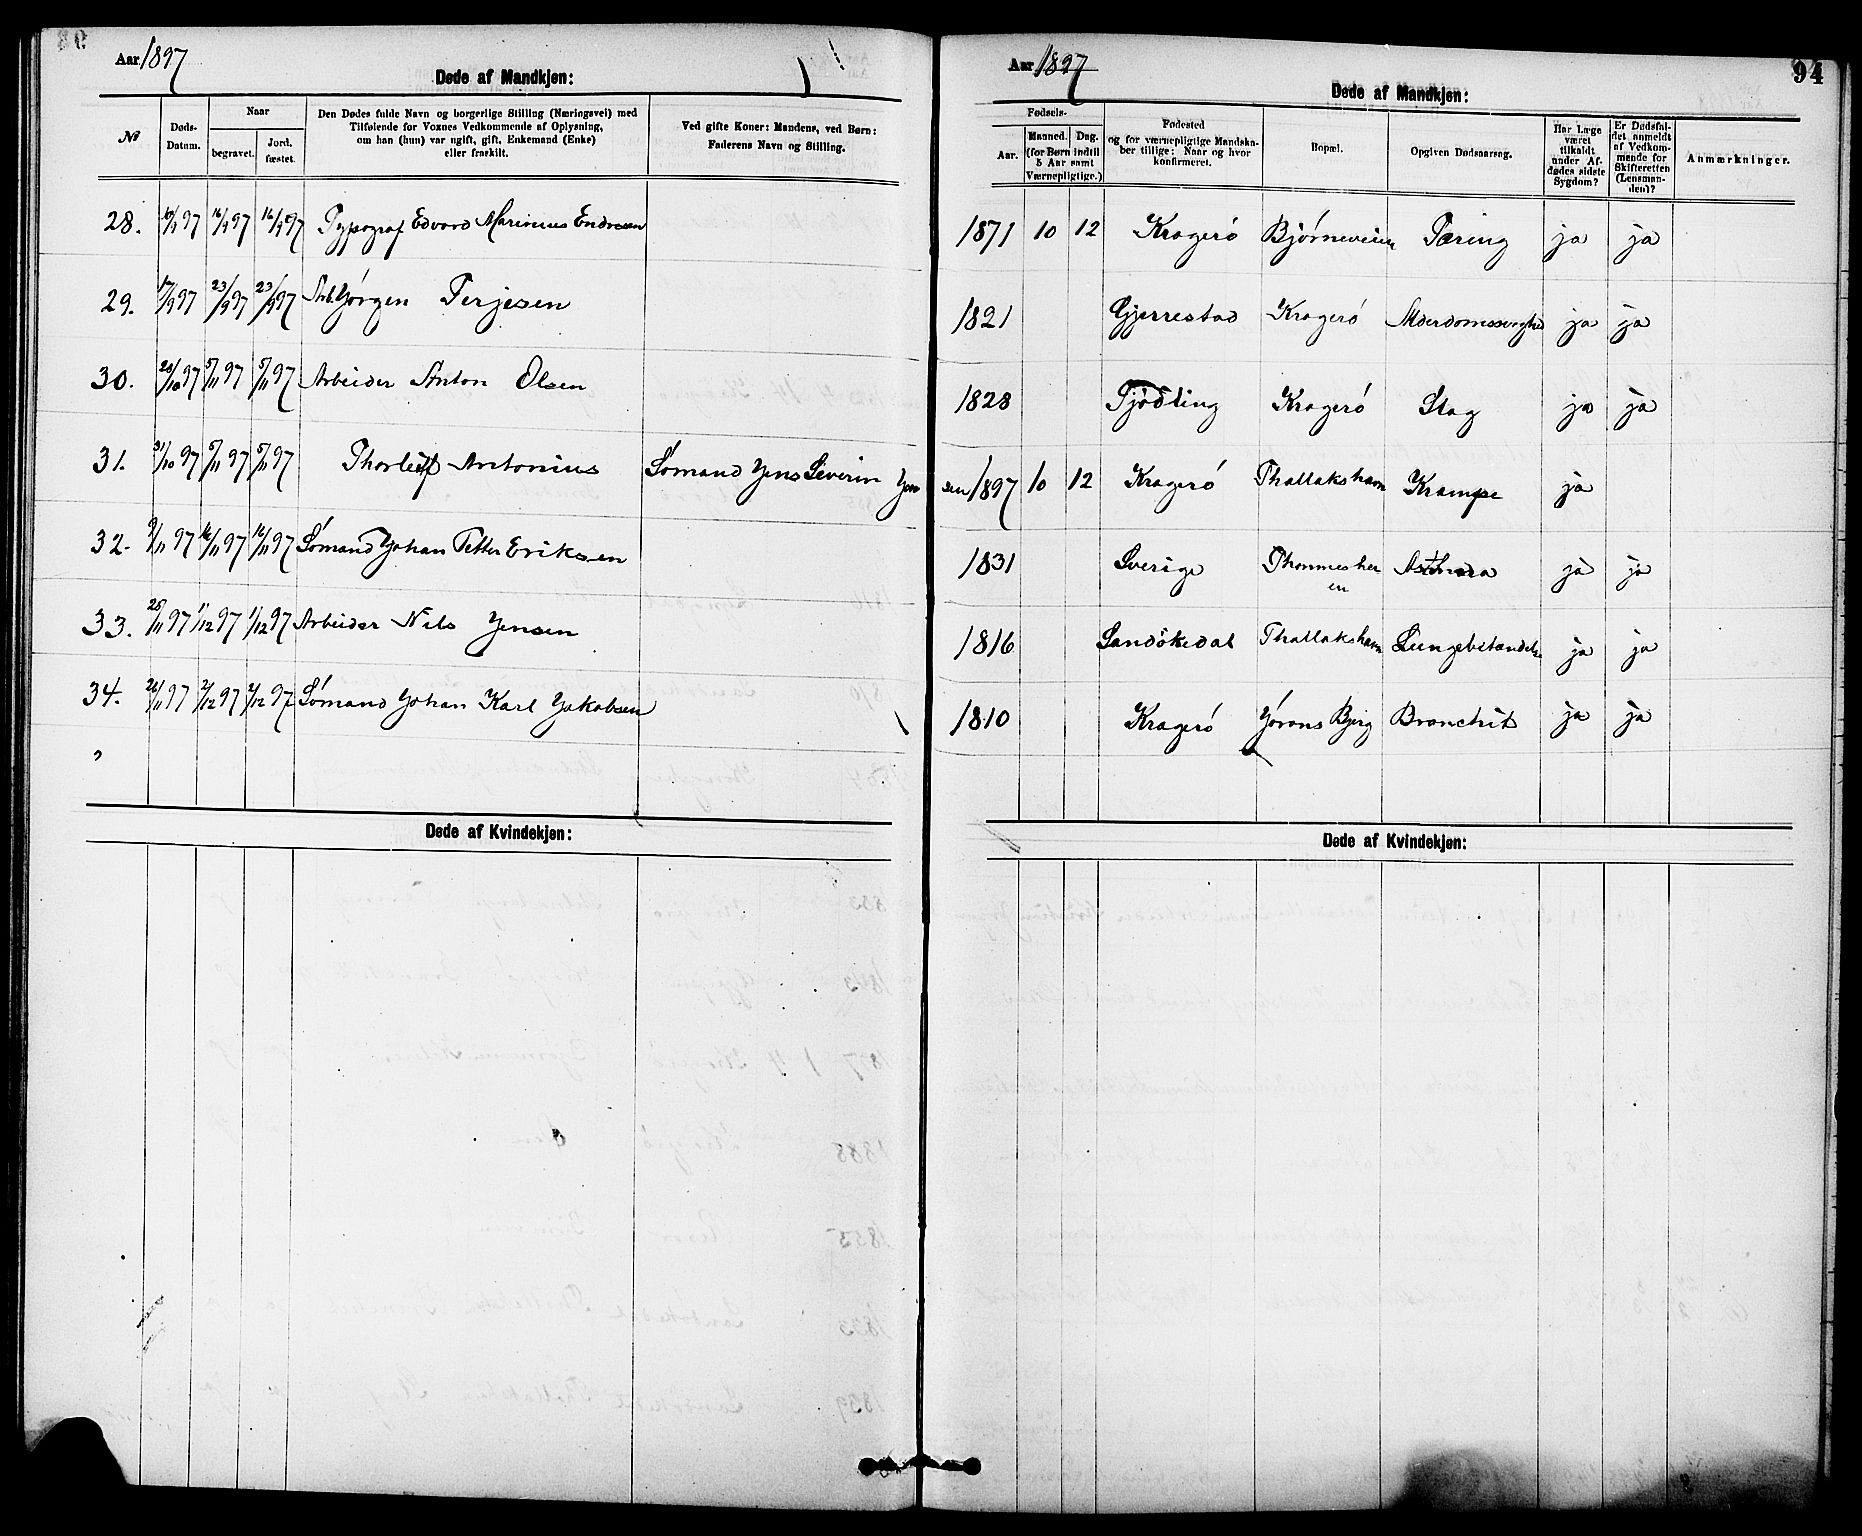 Aar 1897
Døde af Mandkjøn:
№
Døds-
Datum.
Naar
begravet.
Jord-
fæstet.
Den Dødes fulde Navn og borgerlige Stilling (Næringsvei) med
Tilføiende for Voxnes Vedkommende af Oplysning,
om han (hun) var ugift, gift, Enkemand (Enke)
eller fraskilt.
Ved gifte Koner: Mandens, ved Børn:
Faderens Navn og Stilling.
Aar 1897
94
Døde af Mandkjøn:
Fødsels-
Aar.
Maaned. Dag.
(for Børn indtil
5 Aar samt
Værnepligtige.)
Fødested
og for værnepligtige Mandska-
ber tillige: Naar og hvor
konfirmeret.
Bopæl.
Opgiven Dødsaarsag.
Har Læge
været
tilkaldt
under Af-
dødes sidste
Sygdom?
Er Dødsfal-
det anmeldt
af Vedkom-
mende for
Skifteretten
(Lensman-
den)?
Anmærkninger.
28. 10/9 97 16/9 97 16/9 97 Typograf Edvard Marinius Endresen 1871 10 12 Kragerö Bjørneveien Tæring ja ja
29. 17/9 97 23/9 97 23/9 97 Arb. Jörgen Terjesen 1821 Gjerrestad Kragerö ja ja
30. 28/10 97 5/11 97 5/11 97 Arbeider Anton Olsen 1828 Kragerö Slag ja ja
31. 31/10 97 5/11 97 5/11 97 Thorleif Antonius Sömand Jens Severin Jensen 1897 10 12 Kragerö Thallakshavn Krampe ja
32. 9/11 97 16/11 97 16/11 97 Sömand Johan Petter Eriksen 1831 Sverige ja ja
33. 25/11 97 1/12 97 1/12 97 Arbeider Nils Jensen 1816 Sandökedal Thallakshavn Lungebetændelse ja ja
34. 26/11 97 2/12 97 2/12 97 Sömand Johan Karl Jakobsen 1810 Kragerö Jörans Bjerg Bronchit ja ja
"
Døde af Kvindekjøn:
Døde af Kvindekjøn: